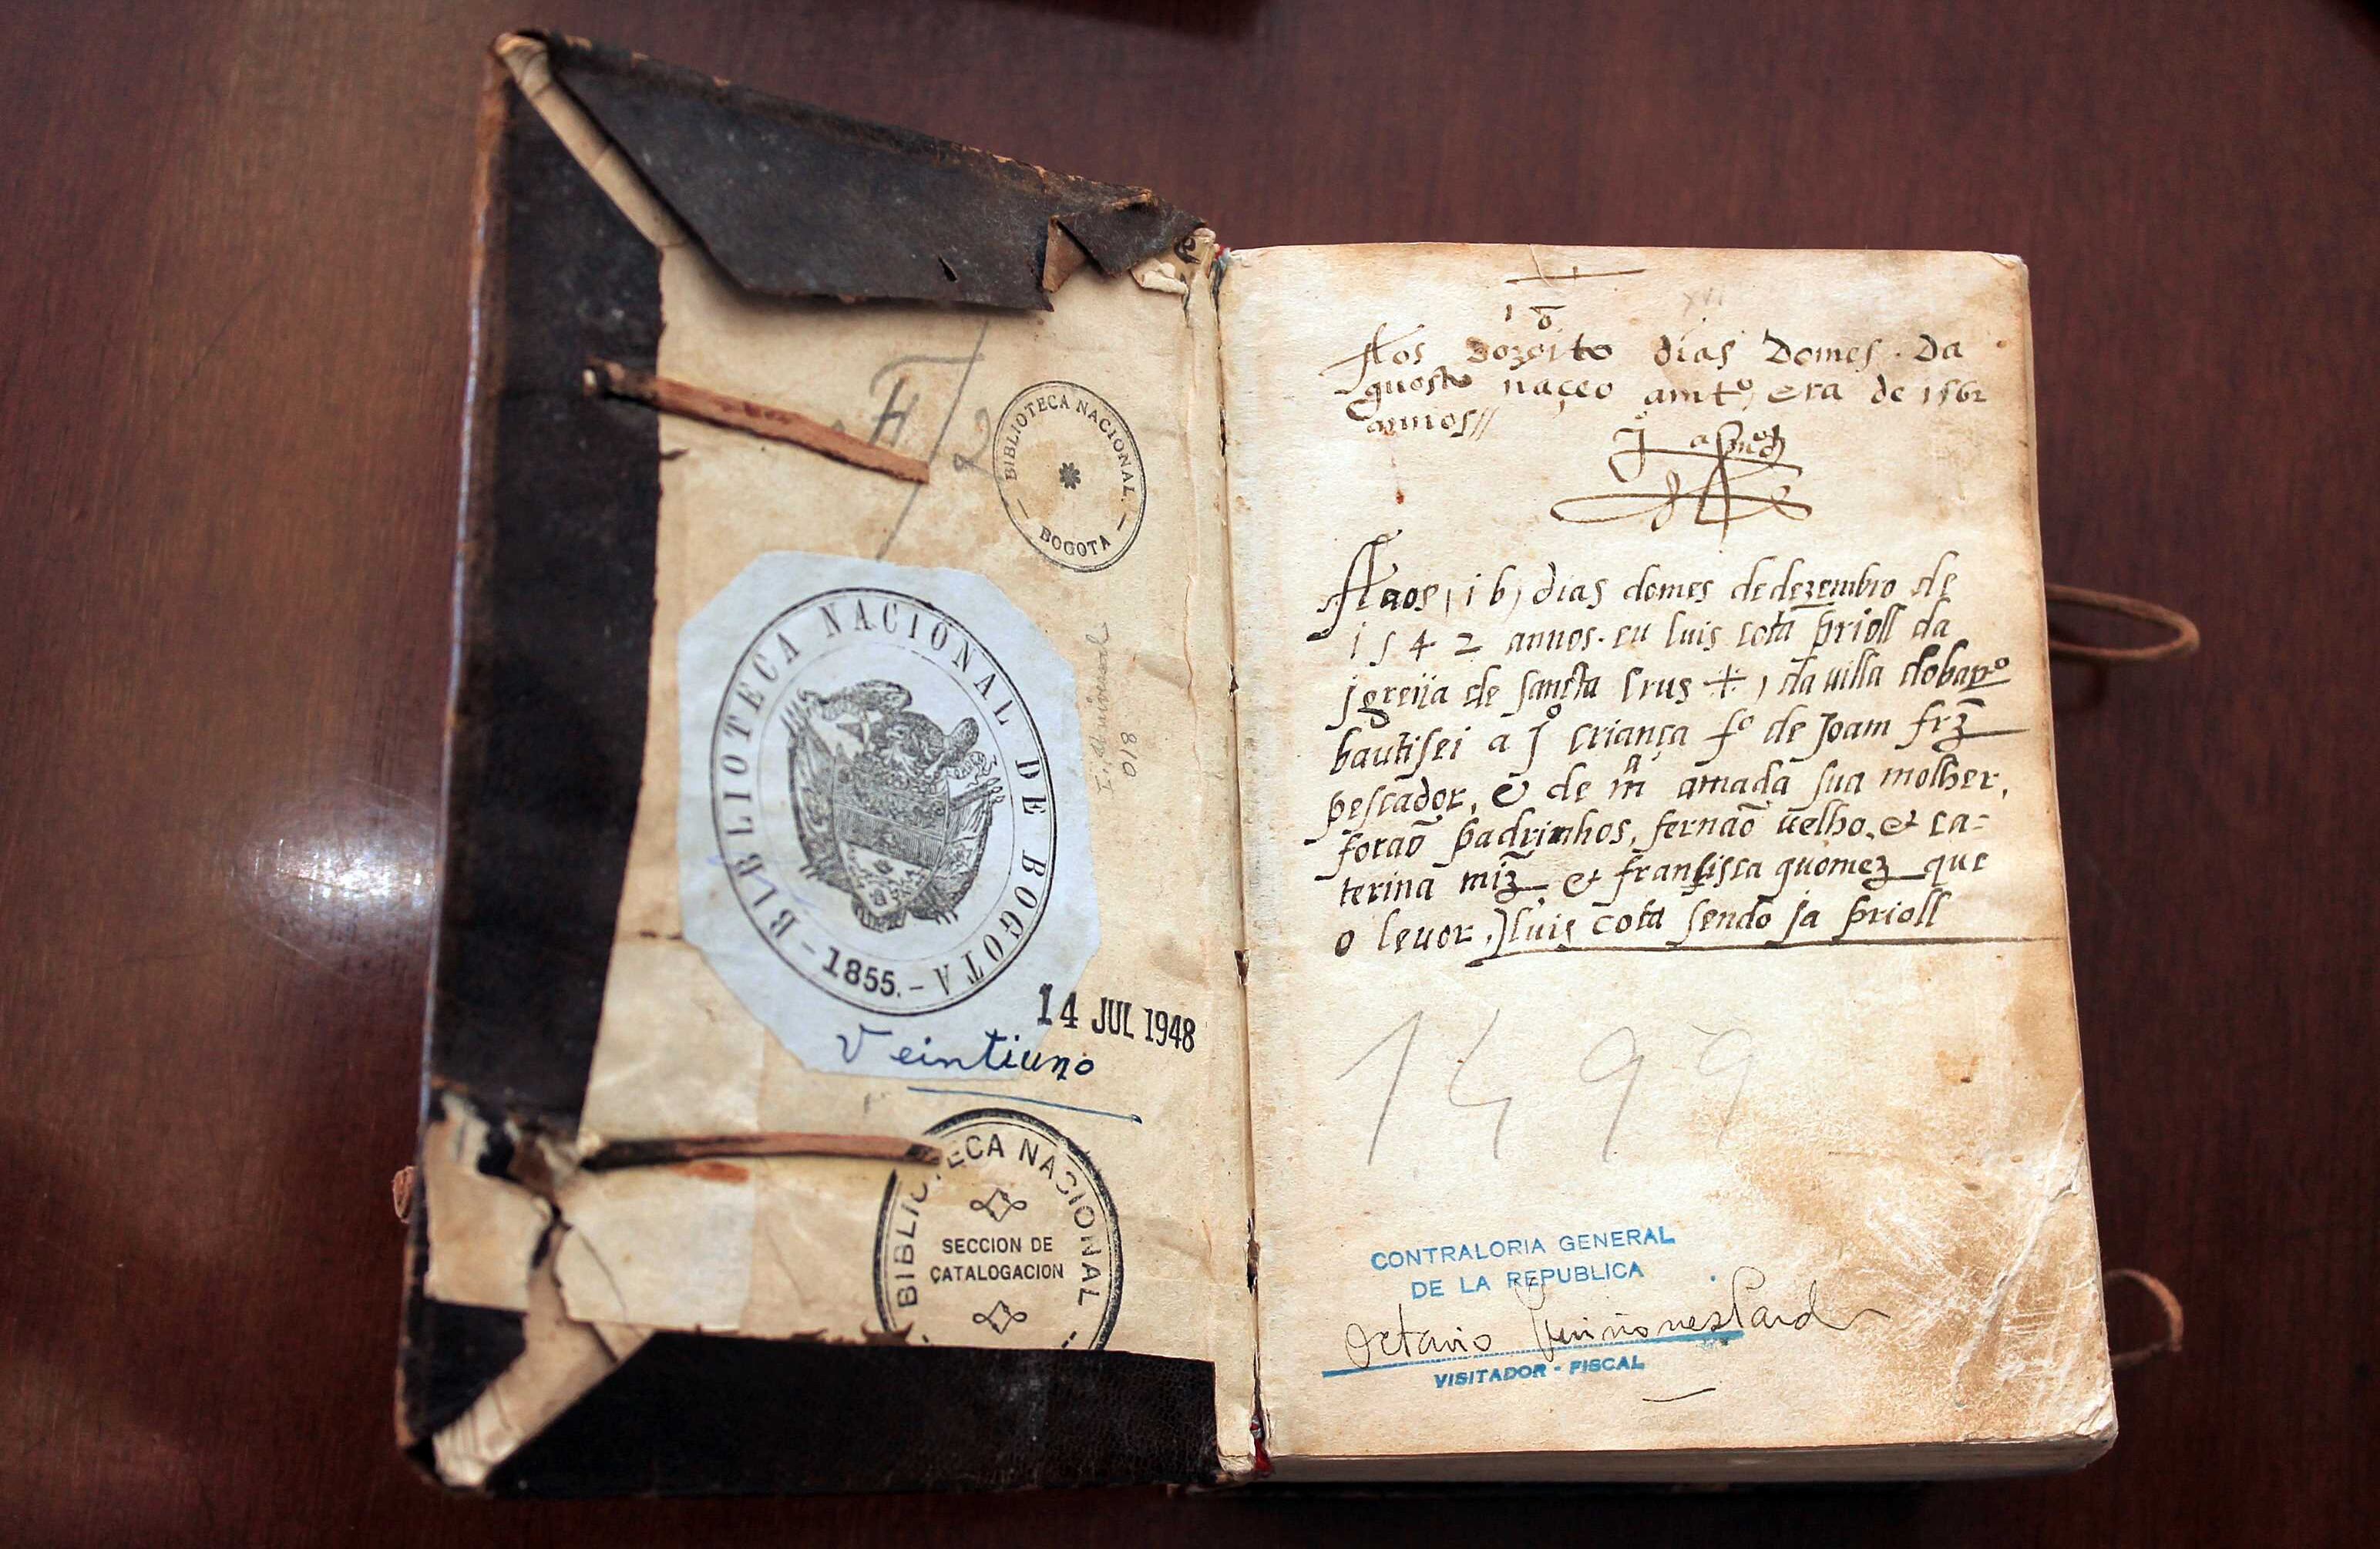 F
2
BIBLIOTECA NACIONAL.
— BOGOTA —
BIBLIOTECA NACIONAL DE BOGOTA
- 1855. -
018
14 JUL 1948
Veintiuno
BIBLIOTECA NACIONAL
SECCION DE
CATALOGACION
18
Aos dozoito dias domes. da
guosto naçeo amto, era de 1562
annos//
Aaos, 16, dias domes dedezembro de
1542 annos. eu luis cota prioll da
jgreija de sancta Crus +, da villa dobarro
bautisei a Jo criança fo de Joam frz
pescador, & de ma amada sua molher,
forão padrinhos, fernão velho, & ca-
terina miz & fransisca guomez que
o levor, luis cota sendo ja prioll
1499
CONTRALORIA GENERAL
DE LA REPUBLICA
Octavio Quiñones Pardo
VISITADOR - FISCAL